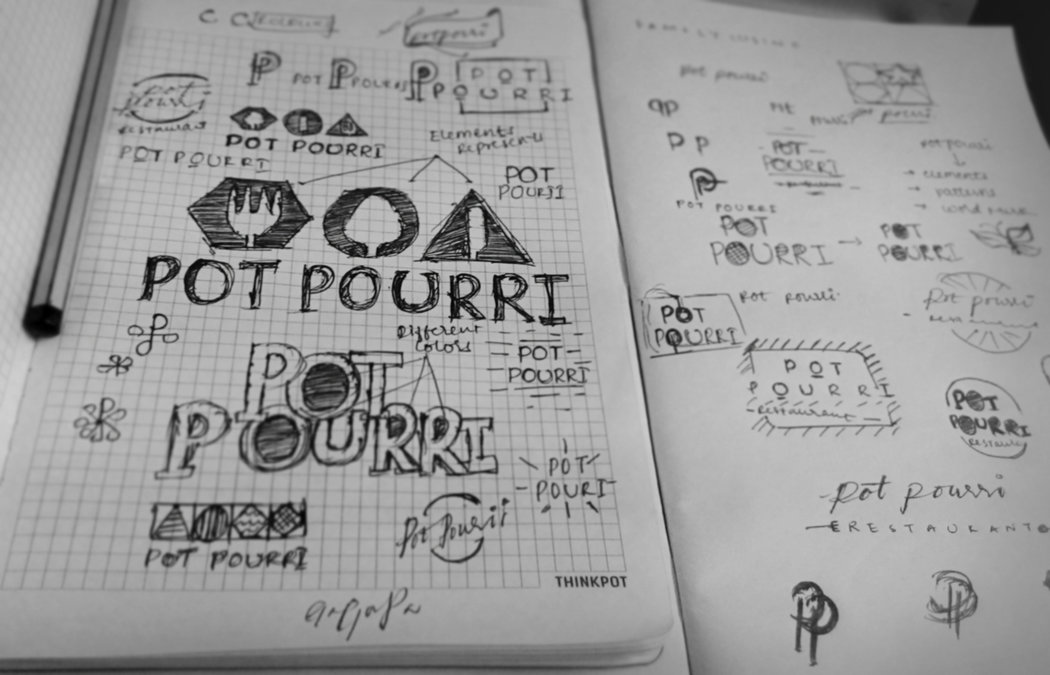 C C
potpourri
P POT POURRI P
POT
POURRI
pot
pourri
restaurant
POT POURRI
POT POURRI
Elements
represents
POT
POURII
POT POURRI
Different
colors
POT
POURRI
POT
POURRI
POT
POURI
POT POURRI
Pot Pourri
THINKPOT
FAMILY CUSINE
pot pourri
pot pourri
PP
P P
POT
POURRI
POT POURRI
potpourri
→ elements
→ patterns
→ word mark
POT
POURRI
→
POT
POURRI
Pot pourri
POT
POURRI
pot pourri
POT
POURRI
restaurant
POT
POURRI
pot pourri
RESTAURANT